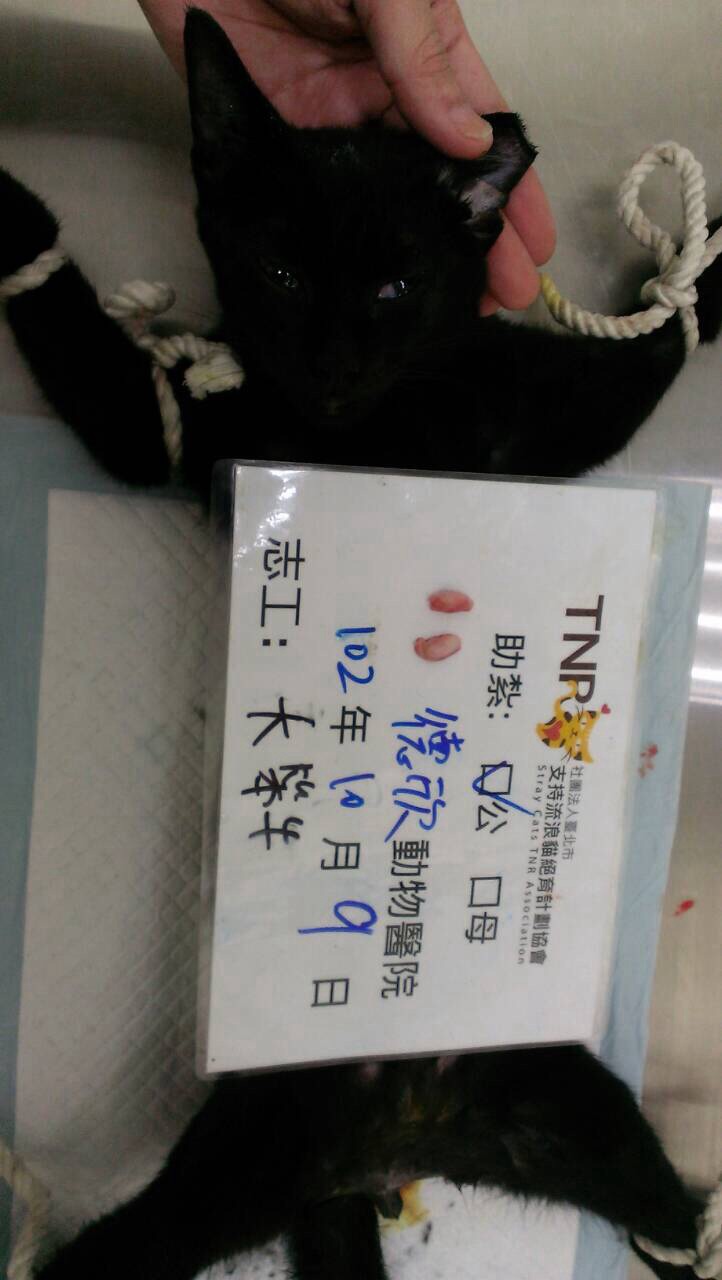 TNR
社團法人臺北市
支持流浪貓絕育計劃協會
Stray Cats TNR Association
助紮：☑公 口母
德欣動物醫院
102年10月9日
志工：大